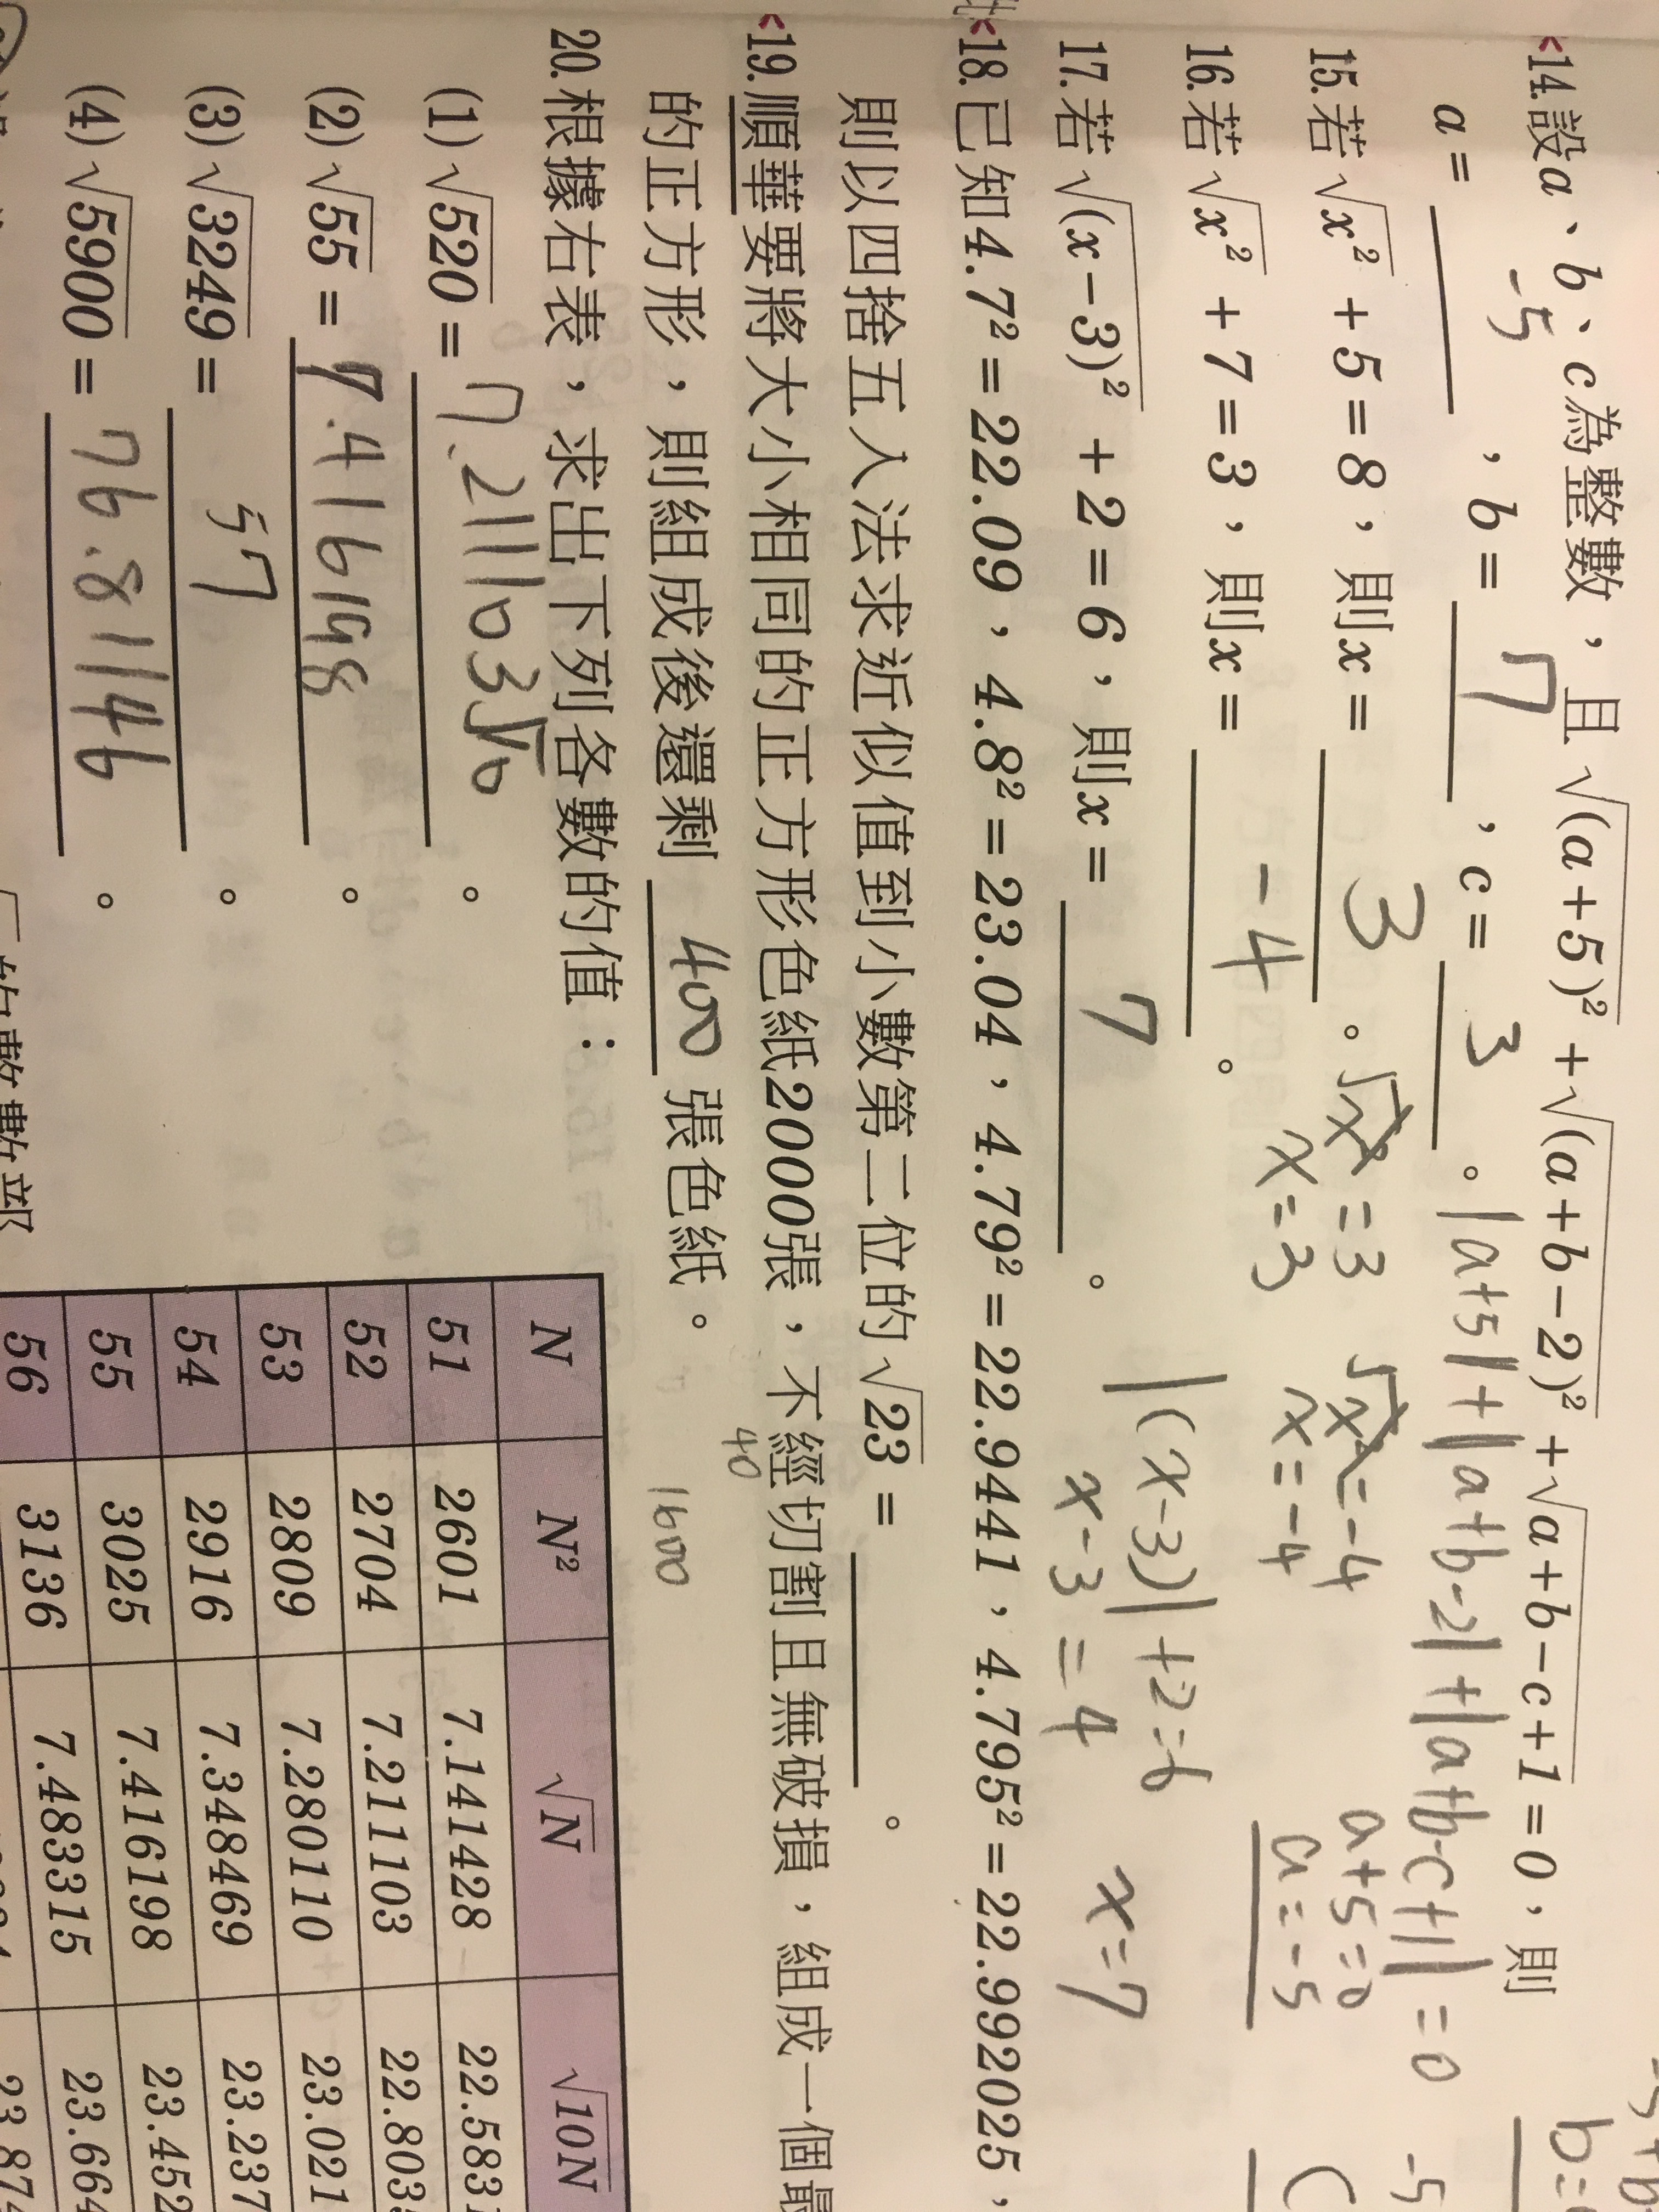 14.設a、b、c為整數，且√(a+5)²+√(a+b−2)²+√a+b−c+1=0，則
a= -5 ，b= 7 ，c= 3 。
|a+5|+|a+b-2|+|a+b-c+1|=0
a+5=0
a=-5
15.若√x²+5=8，則x= 3 。
√x²=3
x=3
√x²=-4
x=-4
16.若√x²+7=3，則x= -4 。
17.若√(x−3)²+2=6，則x= 7 。
|(x-3)|+2=6
x-3=4
x=7
18.已知4.7²=22.09，4.8²=23.04，4.79²=22.9441，4.795²=22.992025，
則以四捨五入法求近似值到小數第二位的√23=。
19.順華要將大小相同的正方形色紙2000張，不經切割且無破損，組成一個最
的正方形，則組成後還剩 400 張色紙。
40
1600
20.根據右表，求出下列各數的值：
(1)√520= 7.211103√10 。
(2)√55= 7.416198 。
(3)√3249= 57 。
(4)√5900= 76.81146 。
N N² √N √10N
51 2601 7.141428 22.5831
52 2704 7.211103 22.803
53 2809 7.280110 23.021
54 2916 7.348469 23.237
55 3025 7.416198 23.452
56 3136 7.483315 23.664